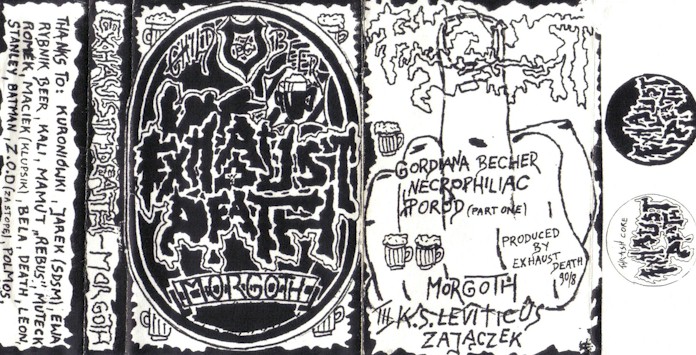 THANKS TO: KURONIÓWKI, JAREK (SDSM), EWA
RYBNIK BEER, KALI, MAMUT „REBUS", MUTECK
ROMEK, MACIEK (KLUPSIK), BELA, DEATH, LEON,
STANLEY, BATMAN, Z.O.D (ZA STOPĘ), POLMOS,
EXHAUST DEATH - MORGOTH
CHILD BEER
EXHAUST
DEATH
MORGOTH
GORDIANA BECHER
NECROPHILIAC
POROD (PART ONE)
PRODUCED
BY
EXHAUST
DEATH
90/8
MORGOTH
K.S. LEVITICUS
ZAJĄCZEK
EXHAUST
DEATH
EXHAUST
DEATH
THRASH CORE